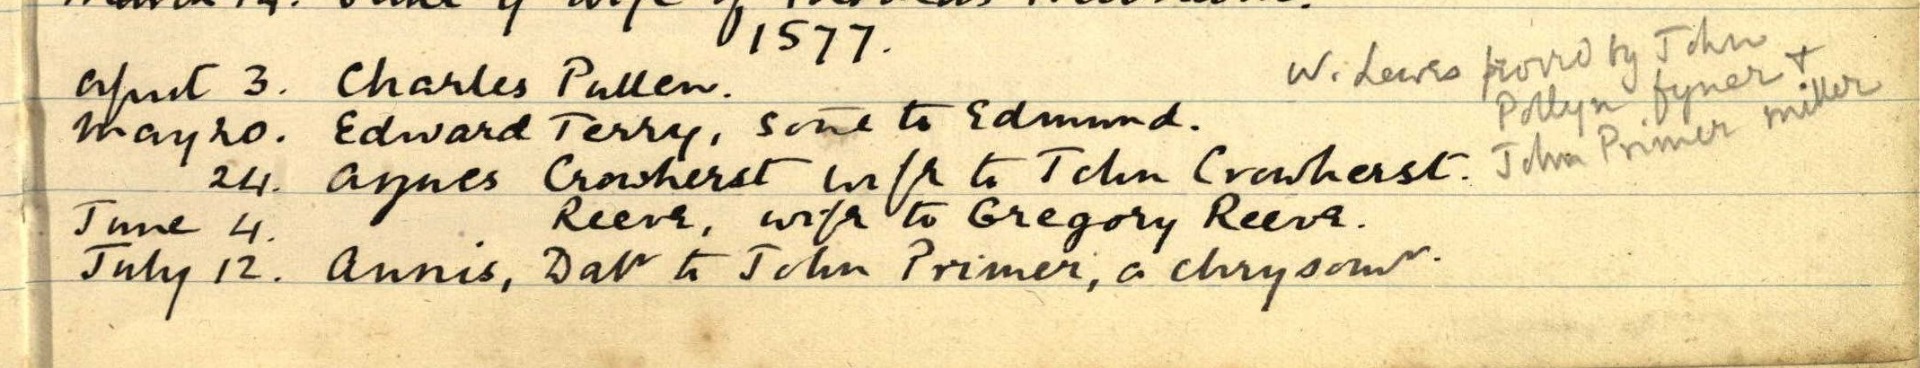 March 14. June yᵉ wife of Thomas
1577.
April 3. Charles Pullen.
May 20. Edward Terry, sone to Edmund.
24. Agnes Crowherst wife to John Crowherst.
June 4. Reeve, wife to Gregory Reeve.
July 12. Annis, Daʳ to John Primer, a chrysomʳ.
W. Lewes provd by John
Pollyn fyner +
John Primer miller